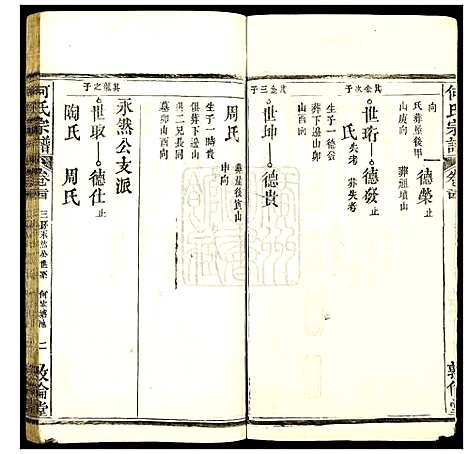 何氏宗譜
卷首
敦倫堂
向
德榮止
氏葬屋後甲
山庚向 葬祖墳山
其金次子
世珩 德發止
氏失考 葬失考
其金三子
世珅 德貴
生子一德
葬下邊山
山酉向
周氏
葬屋後寅山
申向
生子一時貴
俱葬下邊山
與二兄長同
墓卯山酉向
永然公支派
其龍之子
世取 德仕止
陶氏 周氏
何氏宗譜
卷首
三房永然公世系
何家塘池
二
敦倫堂